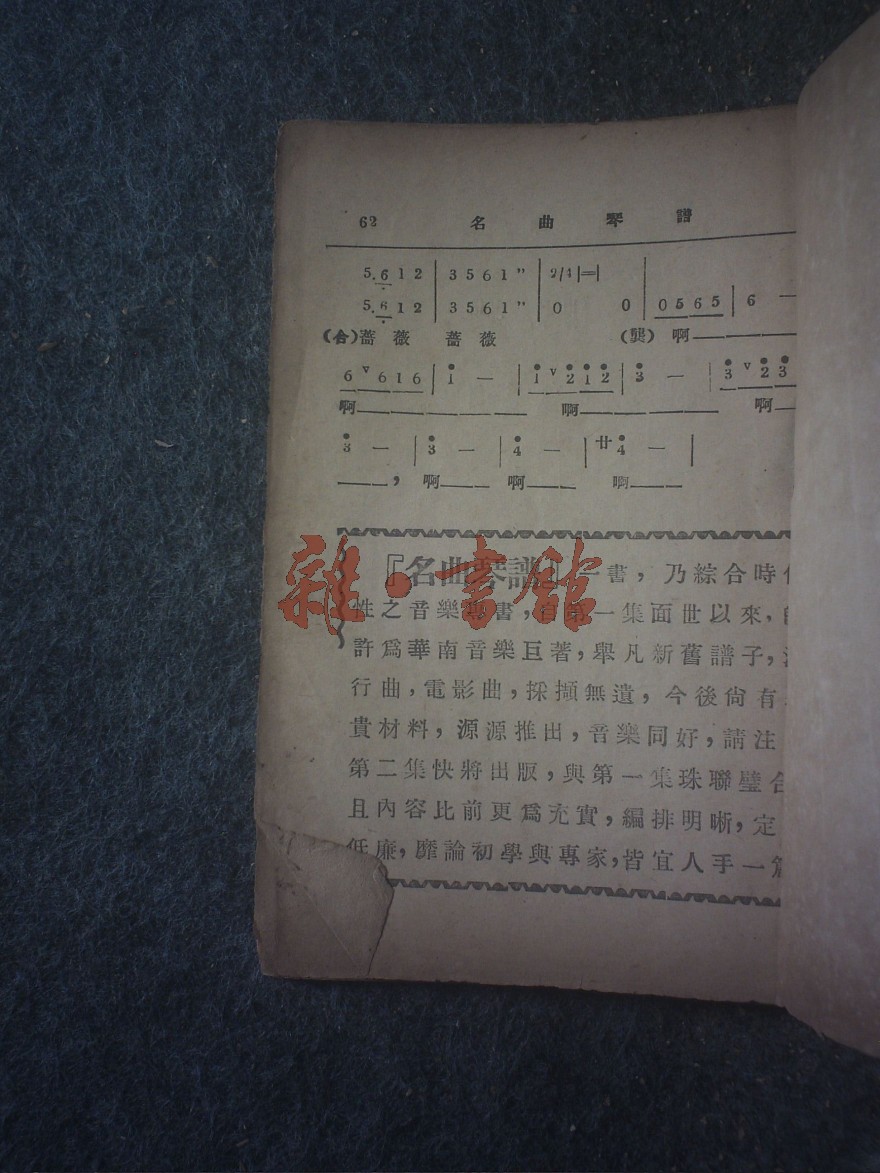 62 名曲琴譜
5.612 | 3561” | 2/4
5.612 | 3561” | 0 0 | 0565 | 6 —
(合)薔薇 薔薇 (龔)啊
6 ∨ 616 | 1 — | 1 ∨ 212 | 3 — | 3 ∨ 23
啊 啊 啊
3 — | 3 — | 4 — | 廿4 — |
，啊 啊 啊
『名曲琴譜』一書，乃綜合時
性之音樂專書，自第一集面世以來，
許爲華南音樂巨著，舉凡新舊譜子，
行曲，電影曲，採擷無遺，今後尙有
貴材料，源源推出，音樂同好，請注
第二集快將出版，與第一集珠聯璧合
且內容比前更爲充實，編排明晰，定
低廉，靡論初學與專家，皆宜人手一
雜·書館